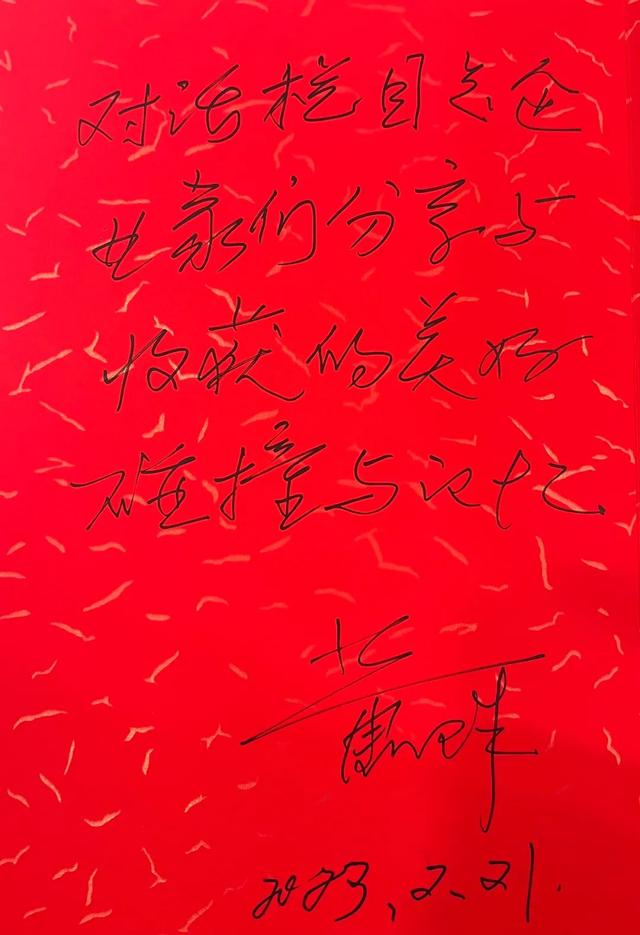 对话栏目是企
业家们分享与
收获的美好
碰撞与记忆
2023.2.21.